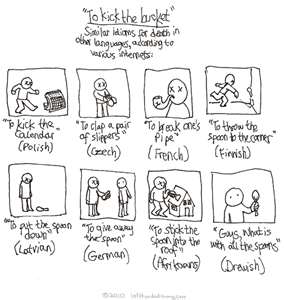 "To kick the bucket"
Similar idioms for death in
other languages, according to
various internets:
"To kick the
calendar"
(Polish)
"To clap a pair
of slippers"
(Czech)
"To break one's
pipe"
(French)
"To throw the
spoon to the corner"
(Finnish)
"To put the spoon
down"
(Latvian)
"To give away
the spoon"
(German)
"To stick the
spoon into the
roof"
(Afrikaans)
"Guys, What is
with all the spoons"
(Drawish)